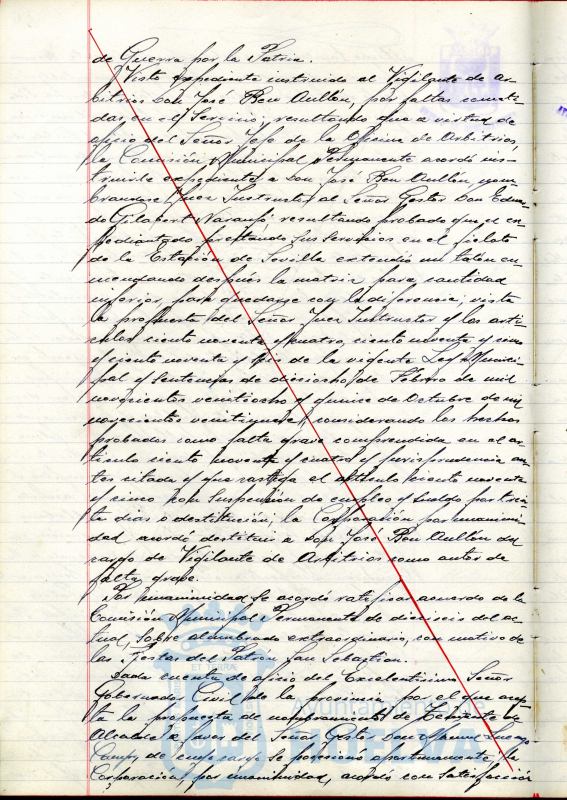 de Guerra por la Patria.
Visto expediente instruido al Vigilante de Ar-
bitrios Don José Ben Aullón, por faltas cometi-
das en el Servicio; resultando que a virtud de
oficio del Señor Jefe de la Oficina de Arbitrios,
la Comisión Municipal Permanente acordó ins-
truirle expediente a Don José Ben Aullón, nom-
brandose Juez Instructor al Señor Gestor Don Eduar-
do Gilabert Naranjo; resultando probado que el ex-
pedientado prestando sus servicios en el fielato
de la Estación de Sevilla extendió un talón en-
mendando después la matriz para cantidad
inferior, para quedarse con la diferencia; vista
la propuesta del Señor Juez Instructor y los arti-
culos ciento noventa y cuatro, ciento noventa y cinco
y ciento noventa y seis de la vigente Ley Munici-
pal y Sentencias de dieciocho de Febrero de mil
novecientos veintiocho y quince de Octubre de mil
novecientos veintinueve; considerando los hechos
probados como falta grave comprendida en el ar-
ticulo ciento noventa y cuatro y jurisprudencia an-
tes citada y que castiga el articulo ciento noventa
y cinco con suspensión de empleo y sueldo por trein-
ta dias o destitución; la Corporación por unanimi-
dad acordó destituir a Don José Ben Aullón del
cargo de Vigilante de Arbitrios como autor de
falta grave.
Por unanimidad se acordó ratificar acuerdo de la
Comisión Municipal Permanente de dieciseis del ac-
tual, sobre alumbrado extraordinario, con motivo de
las Fiestas del Patrón San Sebastian.
Dada cuenta de oficio del Excelentisimo Señor
Gobernador Civil de la provincia por el que acep-
ta la propuesta de nombramiento de Teniente de
Alcalde a favor del Señor Gestor Don Manuel
de cuyo cargo se posesionó oportunamente; la
Corporación, por unanimidad, acordó con satisfacción
ET TERRÆ
Ayuntamiento de
HUELVA